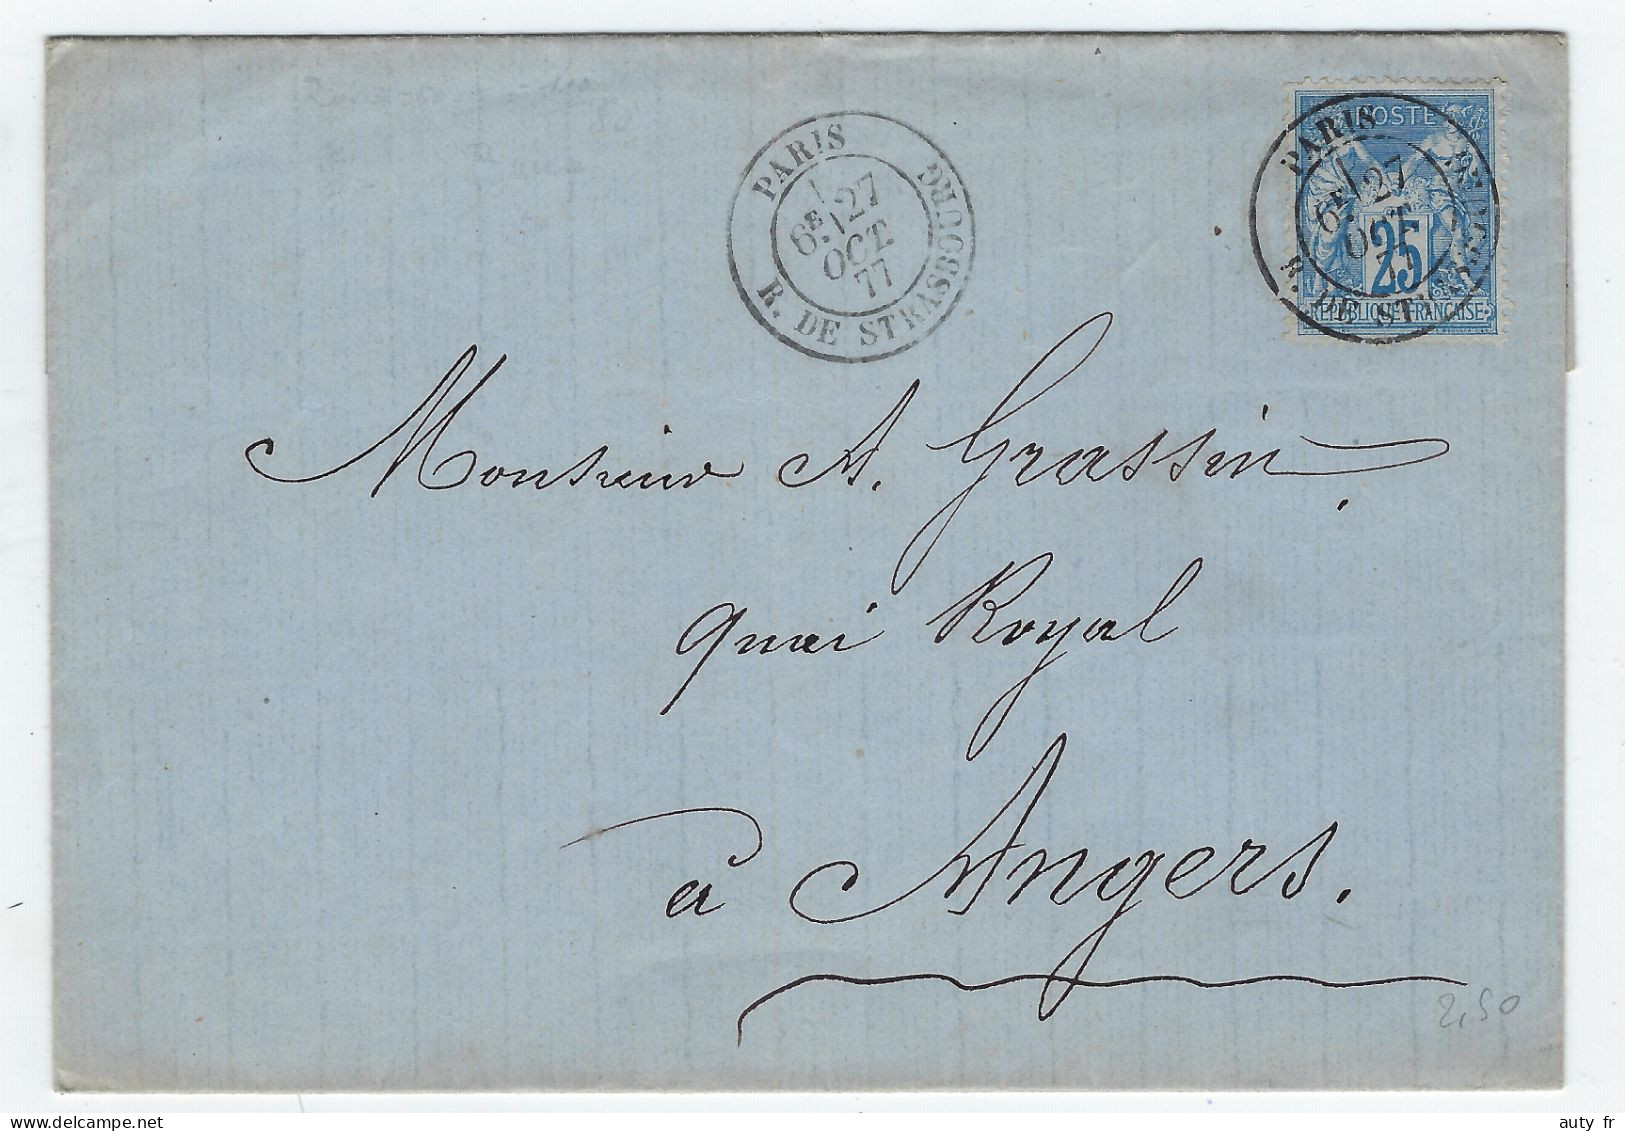 PARIS
6E 27
OCT.
77
R. DE STRASBOURG
POSTE
25
REPUBLIQUE FRANÇAISE
PARIS
6E 27
OCT.
77
R. DE STRASBOURG
Monsieur A. Grassin.
quai Royal
à Angers.
2,50
auty fr